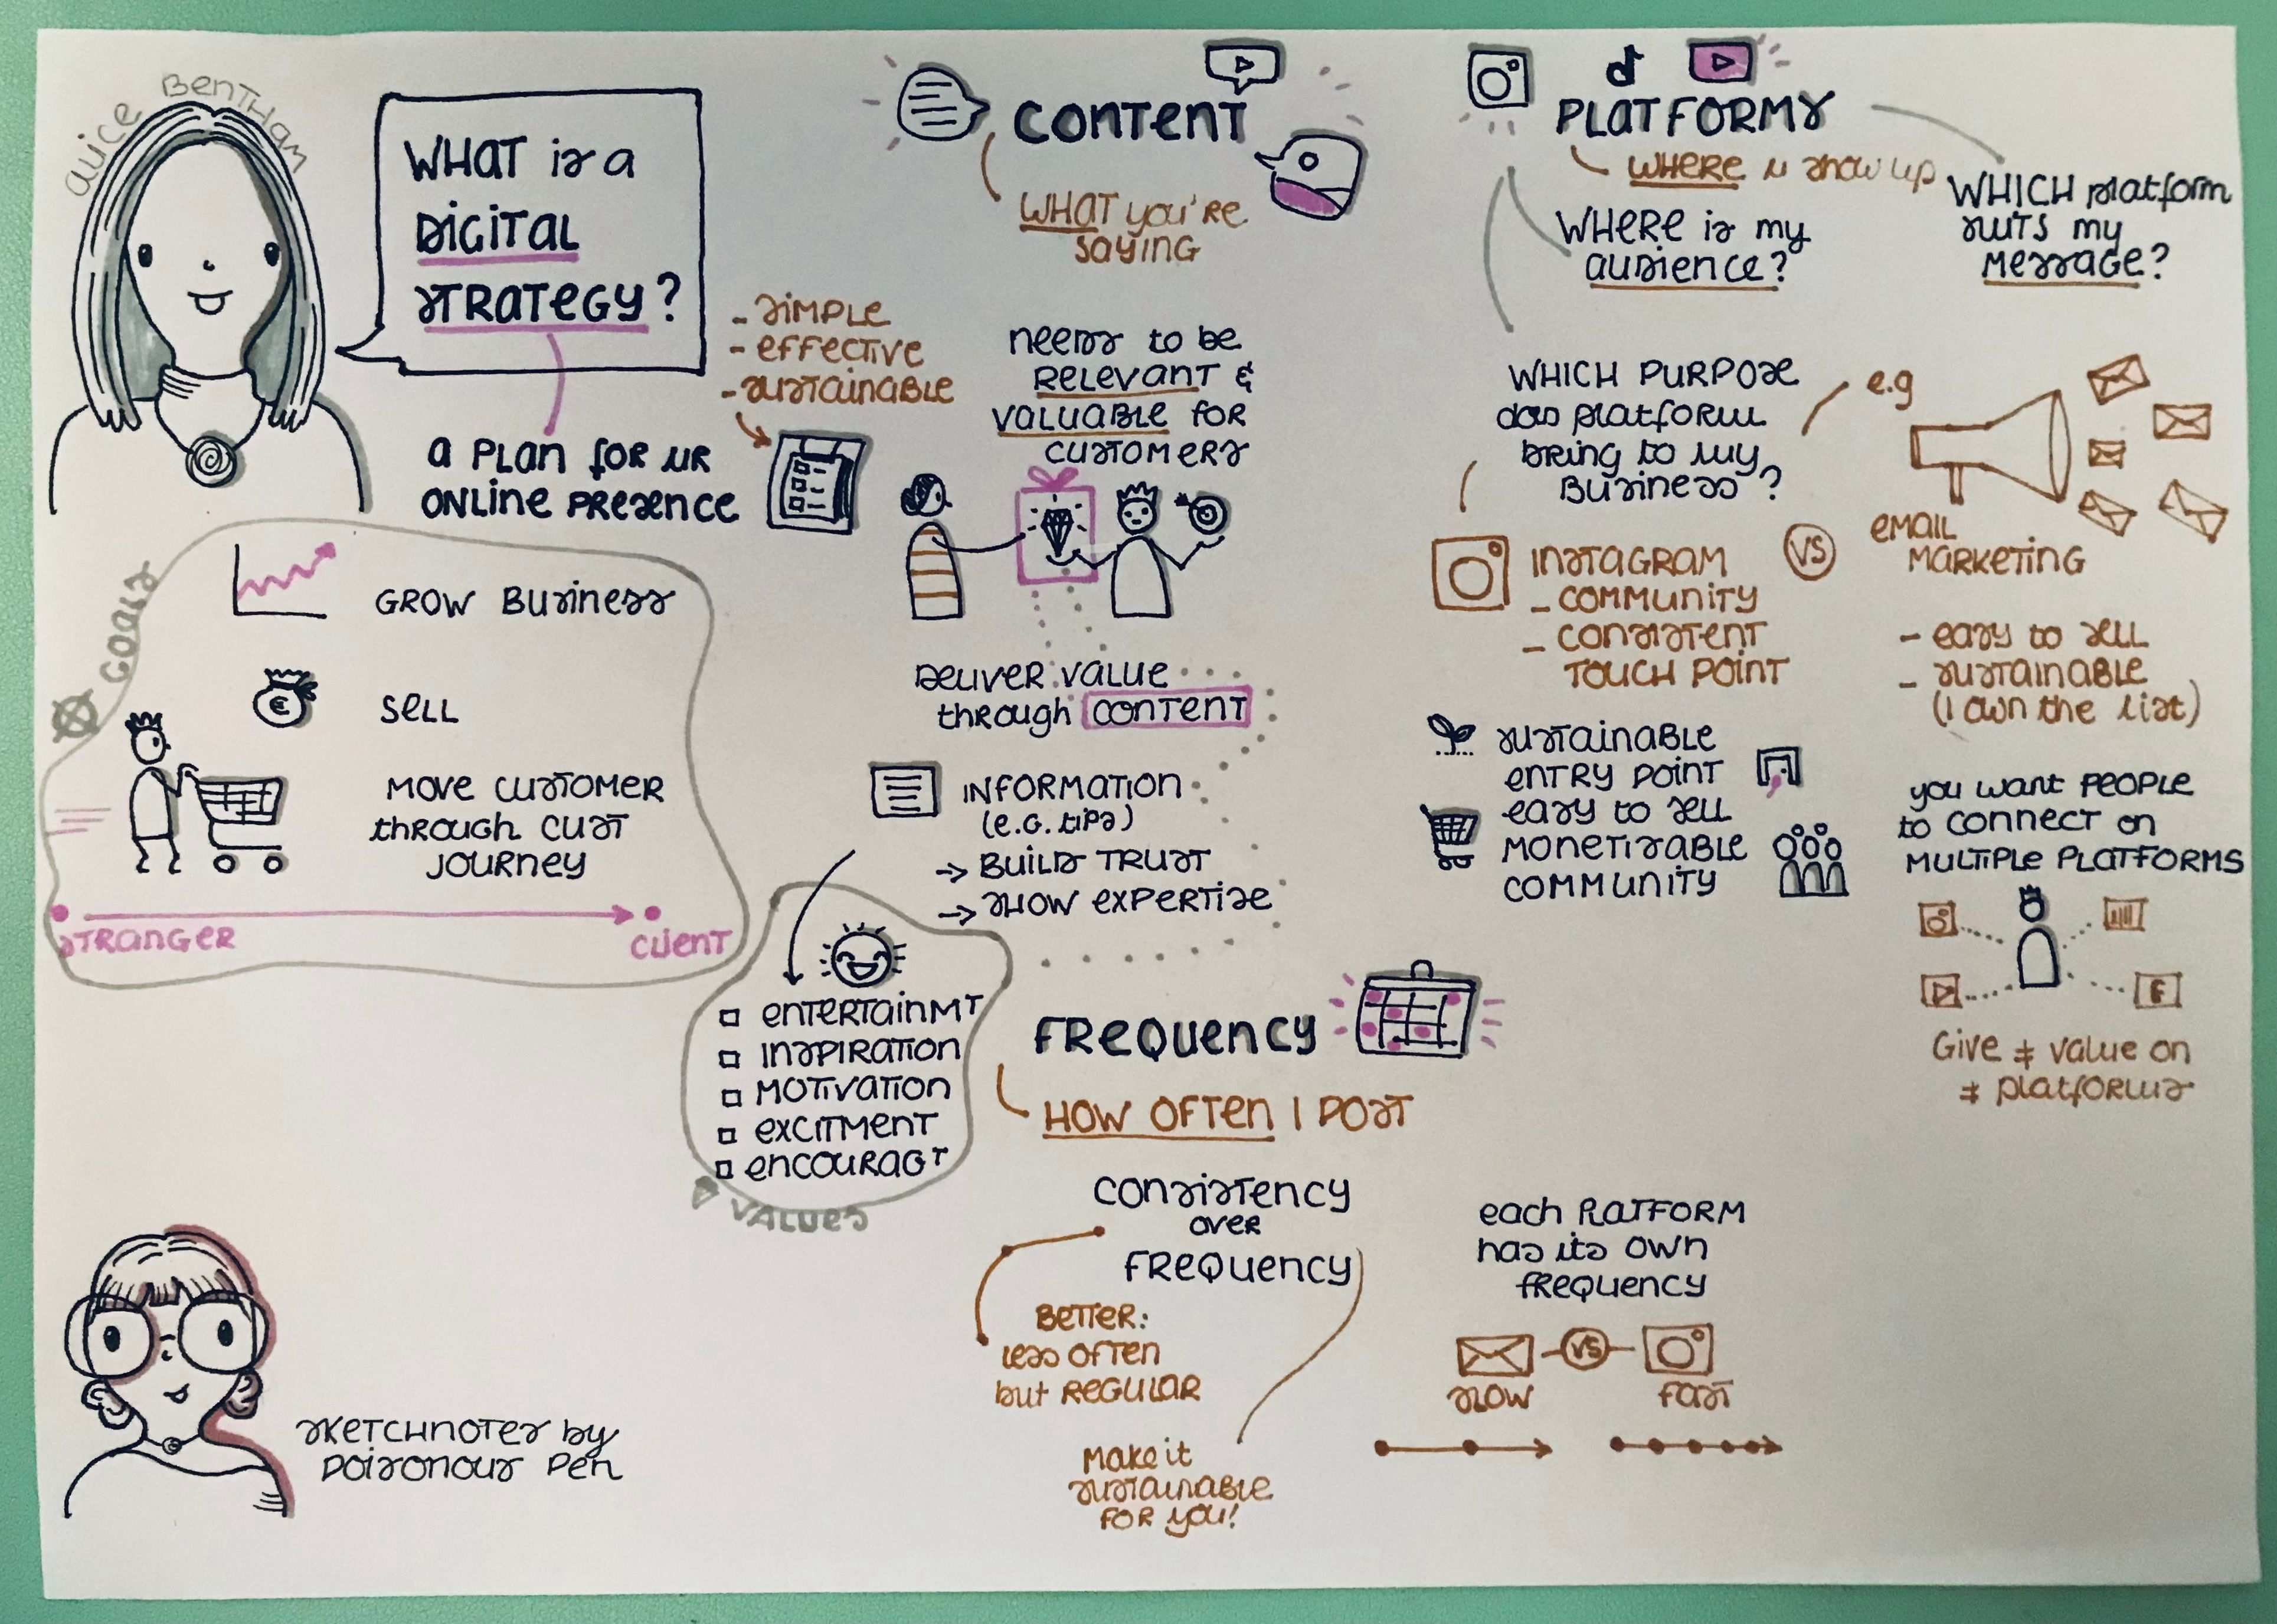 ALICE BENTHAM
WHAT is a
DIGITAL
STRATEGY?
- SIMPLE
- EFFECTIVE
- SUSTAINABLE
a PLAN for UR
ONLINE PRESENCE
GOALS
GROW BUSINESS
€
SELL
MOVE CUSTOMER
through CUST
JOURNEY
STRANGER
CLIENT
CONTENT
WHAT you're
SAYING
needs to be
RELEVANT &
VALUABLE for
CUSTOMERS
DELIVER VALUE
through CONTENT
INFORMATION
(e.G. tips)
→ BUILD TRUST
→ SHOW EXPERTISE
ENTERTAINMT
INSPIRATION
MOTIVATION
EXCITMENT
ENCOURAGT
VALUES
FREQUENCY
HOW OFTEN I POST
CONSISTENCY
OVER
FREQUENCY
BETTER:
LESS OFTEN
but REGULAR
MAKE it
SUSTAINABLE
FOR YOU!
each PLATFORM
has its OWN
FREQUENCY
VS
SLOW
FAST
PLATFORMS
WHERE U SHOW UP
WHERE is my
audience?
WHICH platform
SUITS my
MESSAGE?
WHICH PURPOSE
does platform
bring to my
Business?
e.g
EMAIL
MARKETING
VS
INSTAGRAM
- COMMUNITY
- CONSISTENT
TOUCH POINT
- easy to SELL
- SUSTAINABLE
(I own the list)
SUSTAINABLE
ENTRY POINT
easy to SELL
MONETISABLE
COMMUNITY
you want PEOPLE
to CONNECT on
MULTIPLE PLATFORMS
f
Give ≠ value on
≠ platforms
SKETCHNOTES by
POISONOUS PEN